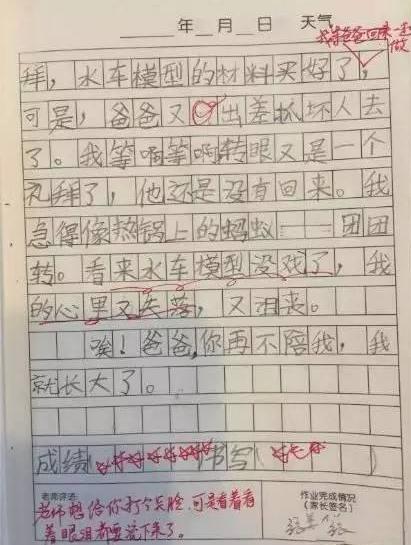 年 月 日 天气
我等爸爸回来一起做
拜，水车模型的材料买好了，
可是，爸爸又出差抓坏人去
了。我等啊等啊转眼又是一个
礼拜了，他还是没有回来。我
急得像热锅上的蚂蚁——团团
转。看来水车模型没戏了，我
的心里又失落，又沮丧。
唉！爸爸，你再不陪我，我
就长大了。
成绩（好好好好好好）书写（好）
老师评语
老师想给你打个笑脸，可是看着看
着眼泪都要流下来了。
作业完成情况
（家长签名）